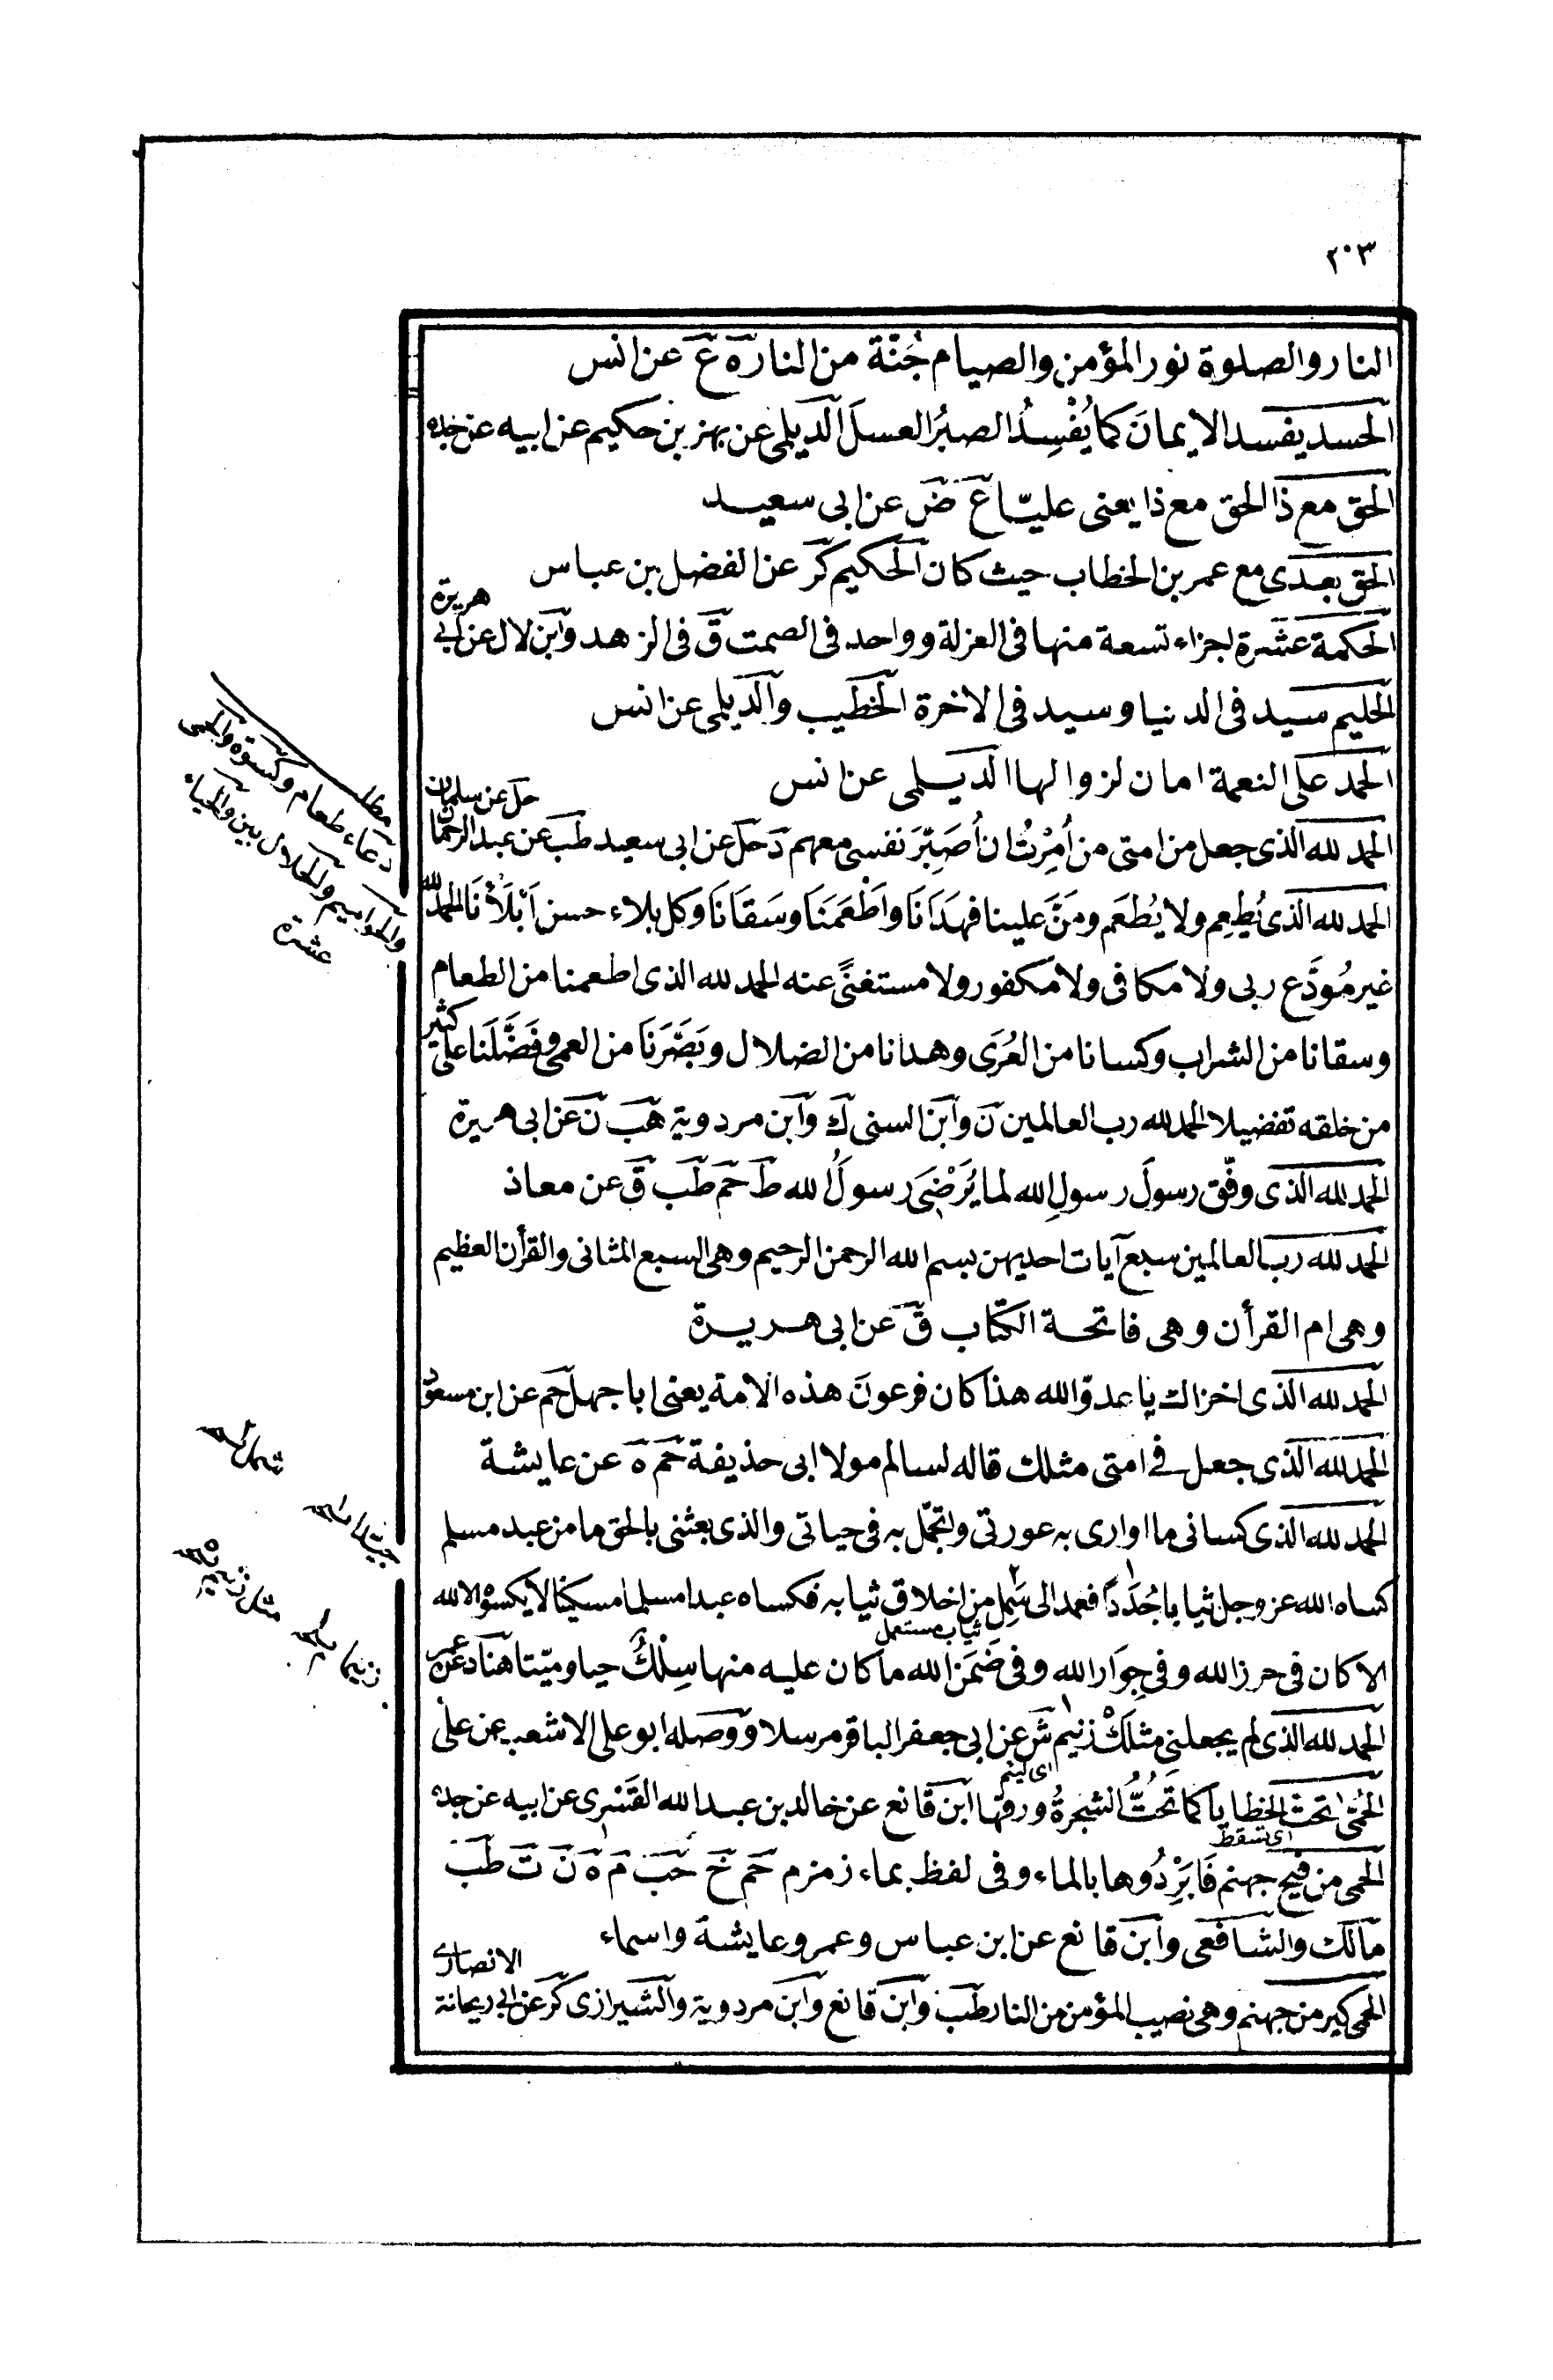 ٢٠٣
النار والصلوة نور المؤمن والصيام جُنّة من النار ه ع عن انس
الحسد يفسد الايمانَ كما يُفْسِدُ الصبُر العسلَ الديلمى عن بهز بن حكيم عن ابيه عن جده
الحق مع ذا الحق مع ذا يعنى عليّا ع ض عن ابى سعيد
الحق بعدى مع عمر بن الخطاب حيث كان الحكيم كر عن الفضل بن عباس
الحكمة عشرة اجزاء تسعة منها فى العزلة وواحد فى الصمت ق فى الزهد وابن لال عن ابى هريرة
الحليم سيد فى الدنيا وسيد فى الاخرة الخطيب والديلمى عن انس
الحمد على النعمة امان لزوالها الديلمى عن انس
الحمد لله الذى جعل من امتى من اُمِرْتُ ان اُصَبِّرَ نفسى معهم د حل عن ابى سعيد طب عن عبد الرحمان حل عن سلمان
الحمد لله الذى يُطعِم ولا يُطعَم ومَنَّ علينا فهدَانَا واَطْعَمَنَا وسَقَانَا وكل بلاء حسن اَبْلَاْنَا الحمد لله
غير مُوَدَّع ربى ولا مكافى ولا مكفور ولا مستغنًى عنه الحمد لله الذى اطعمنا من الطعام
وسقانا من الشراب وكسانا من العُرَى وهدانا من الضلال وبَصَّرَنَا من العمى وفَضَّلَنا على كثير
من خلقه تفضيلا الحمد لله رب العالمين ن وابن السنى ك وابن مردوية هب ن عن ابى هريرة
الحمد لله الذى وفّق رسولَ رسولِ الله لما يَرْضىَ رسولُ الله ط حم طب ق عن معاذ
الحمد لله رب العالمين سبع آيات احديهن بسم الله الرحمن الرحيم وهى السبع المثانى والقرأن العظيم
وهى ام القرأن وهى فاتحة الكتاب ق عن ابى هريرة
الحمد لله الذى اخزاك يا عدوّ الله هذا كان فرعونَ هذه الامة يعنى ابا جهل حم عن ابن مسعود
الحمد لله الذى جعل فى امتى مثلك قاله لسالم مولا ابى حذيفة حم ه عن عايشة
الحمد لله الذى كسانى ما اوارى به عورتى واتجمّل به فى حياتى والذى بعثنى بالحق ما من عبد مسلم
كساه الله عز وجل ثيابا جُدَدًا فعمد الى سَمِلٍ من اخلاق ثيابه فكساه عبدا مسلما مسكينا لا يكسوه الا لله
ثياب مستعمل
الا كان فى حرز الله وفى جِوَار الله وفى ضَمَن الله ما كان عليه منها سِلْكٌ حيا وميّتا هناد عن عمر
الحمد لله الذى لم يجعلنى مثلَكْ زنيم ش عن ابى جعفر الباقر مرسلا ووصله ابو على الاشعب عن على
اى لئيم
الحُمّى تحت الخطايا كما تَحُتُّ الشجرةُ ورقها ابن قانع عن خالد بن عبد الله القَسْرى عن ابيه عن جده
اى تسقط
الحمى من فيح جهنم فَابَرْدُوها بالماء وفى لفظ بماء زمزم حم خ حب م ه ن ت طب
مالك والشافعى وابن قانع عن ابن عباس وعمر وعايشة واسماء
الحمى كير من جهنم وهى نصيب المؤمن من النار طب وابن قانع وابن مردوية والشيرازى كر عن ابى ريحانة الانصارى
مطلب
دعاء طعام وكسوة والحمى
والحواميم والحلال بين والحياء
عشرة